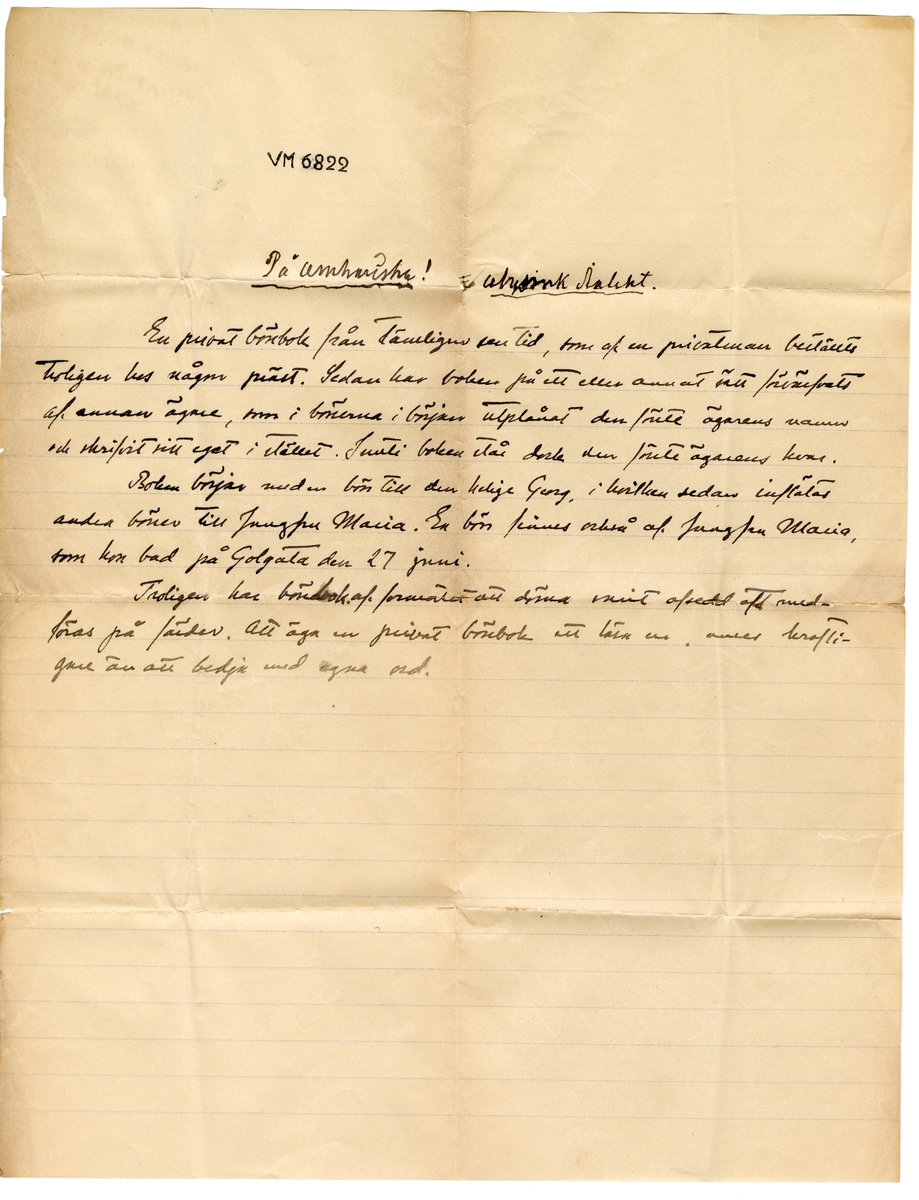 VM 6822
På amhariska! abysinsk dialekt.
En privat bönbok från tämligen sen tid, som af en privatman beställts
troligen hos någon präst. Sedan har boken på ett eller annat sätt förvärfvats
af annan ägare, som i bönerna i början utplånat den förste ägarens namn
och skrifvit sitt eget i stället. Inuti boken står dock den förste ägarens kvar.
Boken börjar med en bön till den helige Georg, i hvilken sedan inflätas
andra böner till Jungfru Maria. En bön finnes också af Jungfru Maria,
som hon bad på Golgata den 27 juni.
Troligen har bönbok af formatet att döma varit afsedd att med-
föras på färder. Att äga en privat bönbok att läsa ur, anses krafti-
gare än att bedja med egna ord.